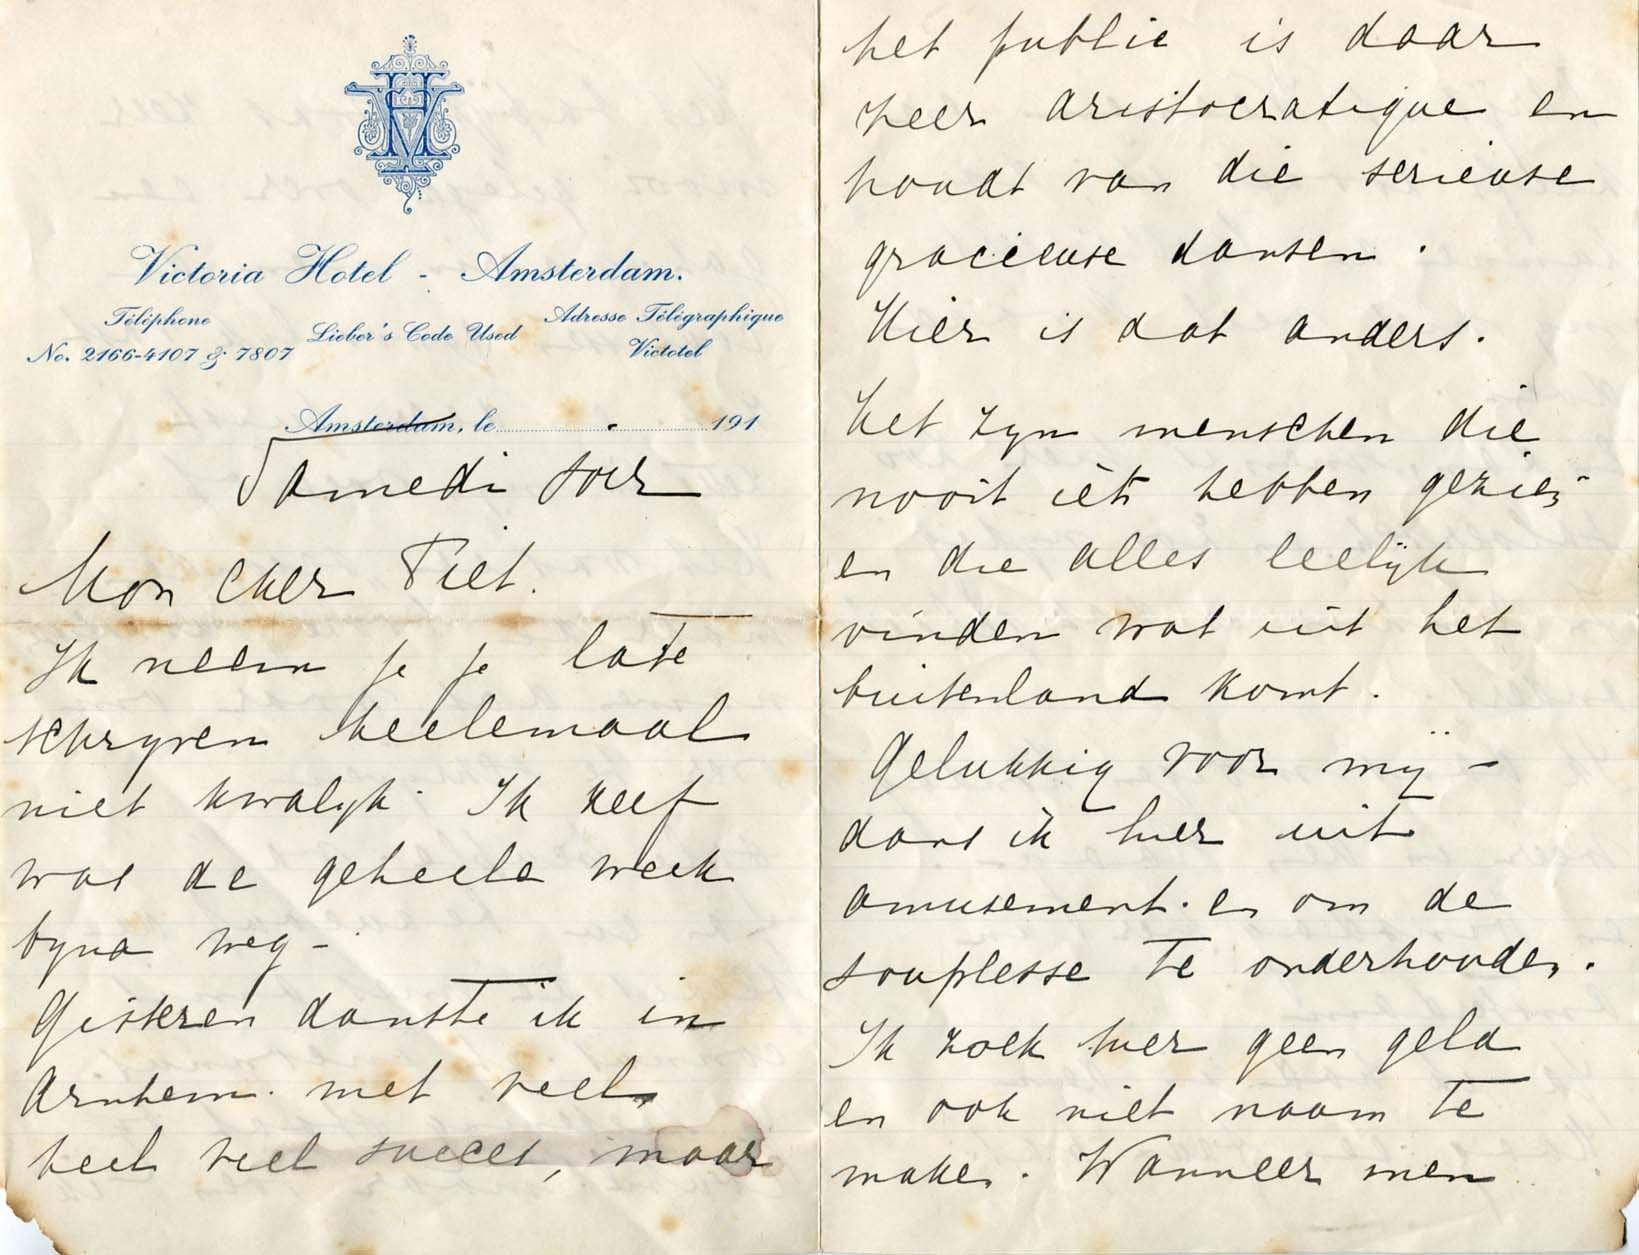 VH
Victoria Hotel - Amsterdam.
Téléphone
No. 2166-4107 & 7807
Lieber's Code Used
Adresse Télégraphique
Victotel
Amsterdam, le 191
Samedi soir
Mon cher Piet.
Ik neem je je late
schryven heelemaal
niet kwalyk. Ik zelf
was de geheele week
byna weg -
Gisteren danste ik in
Arnhem. met veel,
heel veel succes, maar
het public is daar
zeer aristocratique en
houdt van die serieuse
gracieuse dansen.
Hier is dat anders.
Het zyn menschen die
nooit iets hebben gezien
en die alles leelijk
vinden wat uit het
buitenland komt.
Gelukkig voor mij -
dans ik hier uit
amusement. en om de
souplesse te onderhouden.
Ik zoek hier geen geld
en ook niet naam te
maken. Wanneer men